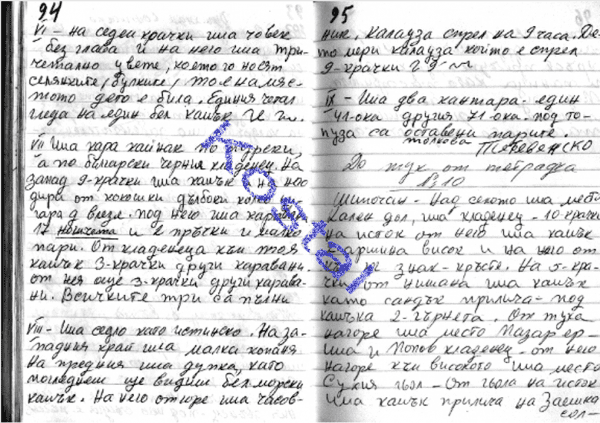 94
VI – На седем крачки има човек
без глава и на него има три
четално цвете, което го носят
селянките, булките, тое на мяс-
тото дето е била. Единия четал
гледа на един бял камък
VII Има кара кайнак по турски,
а по български черния кладенец. На
запад 9-крачки има камък и на него
дири от кокошки дълбоки колкото
пара д влезе. под него има каравани
17 и е пръчки и малко
пари. От кладенеца към тоя
камък 3-крачки други каравани.
от нея още 3-крачки други карава-
ни. Всичките три са пълни
VIII – Има седло като истинско. На за-
падния край има малка копаня
На предния има дупка, като
погледнеш ще видиш бял морски
камък. На него отгоре има часов-
95
ник. Калауза стрел на 9 часа.
мери калауза който е стрел
9-крачки
IX – Има два кантара – един
41-ока другия 71-ока. под то-
пуза са оставени парите.
толкова Тетевенско
До тук от тетрадка
№ 10
Шипочан – Над селото има место
Кален дол, има кладенец – 10 крачки
на исток от него има камък
аршина висок и на него от
знак – кръсте. На 5-кра-
чки от нишана има камък
като сандък прилича – под
камъка 2-гърнета. От тука
нагоре има место Мазар ер-
има и Попов кладенец. от него
нагоре към високото има место
Сухия гьол – От гьола на исток
има камък прилича на Заешка
сол–
Kostal